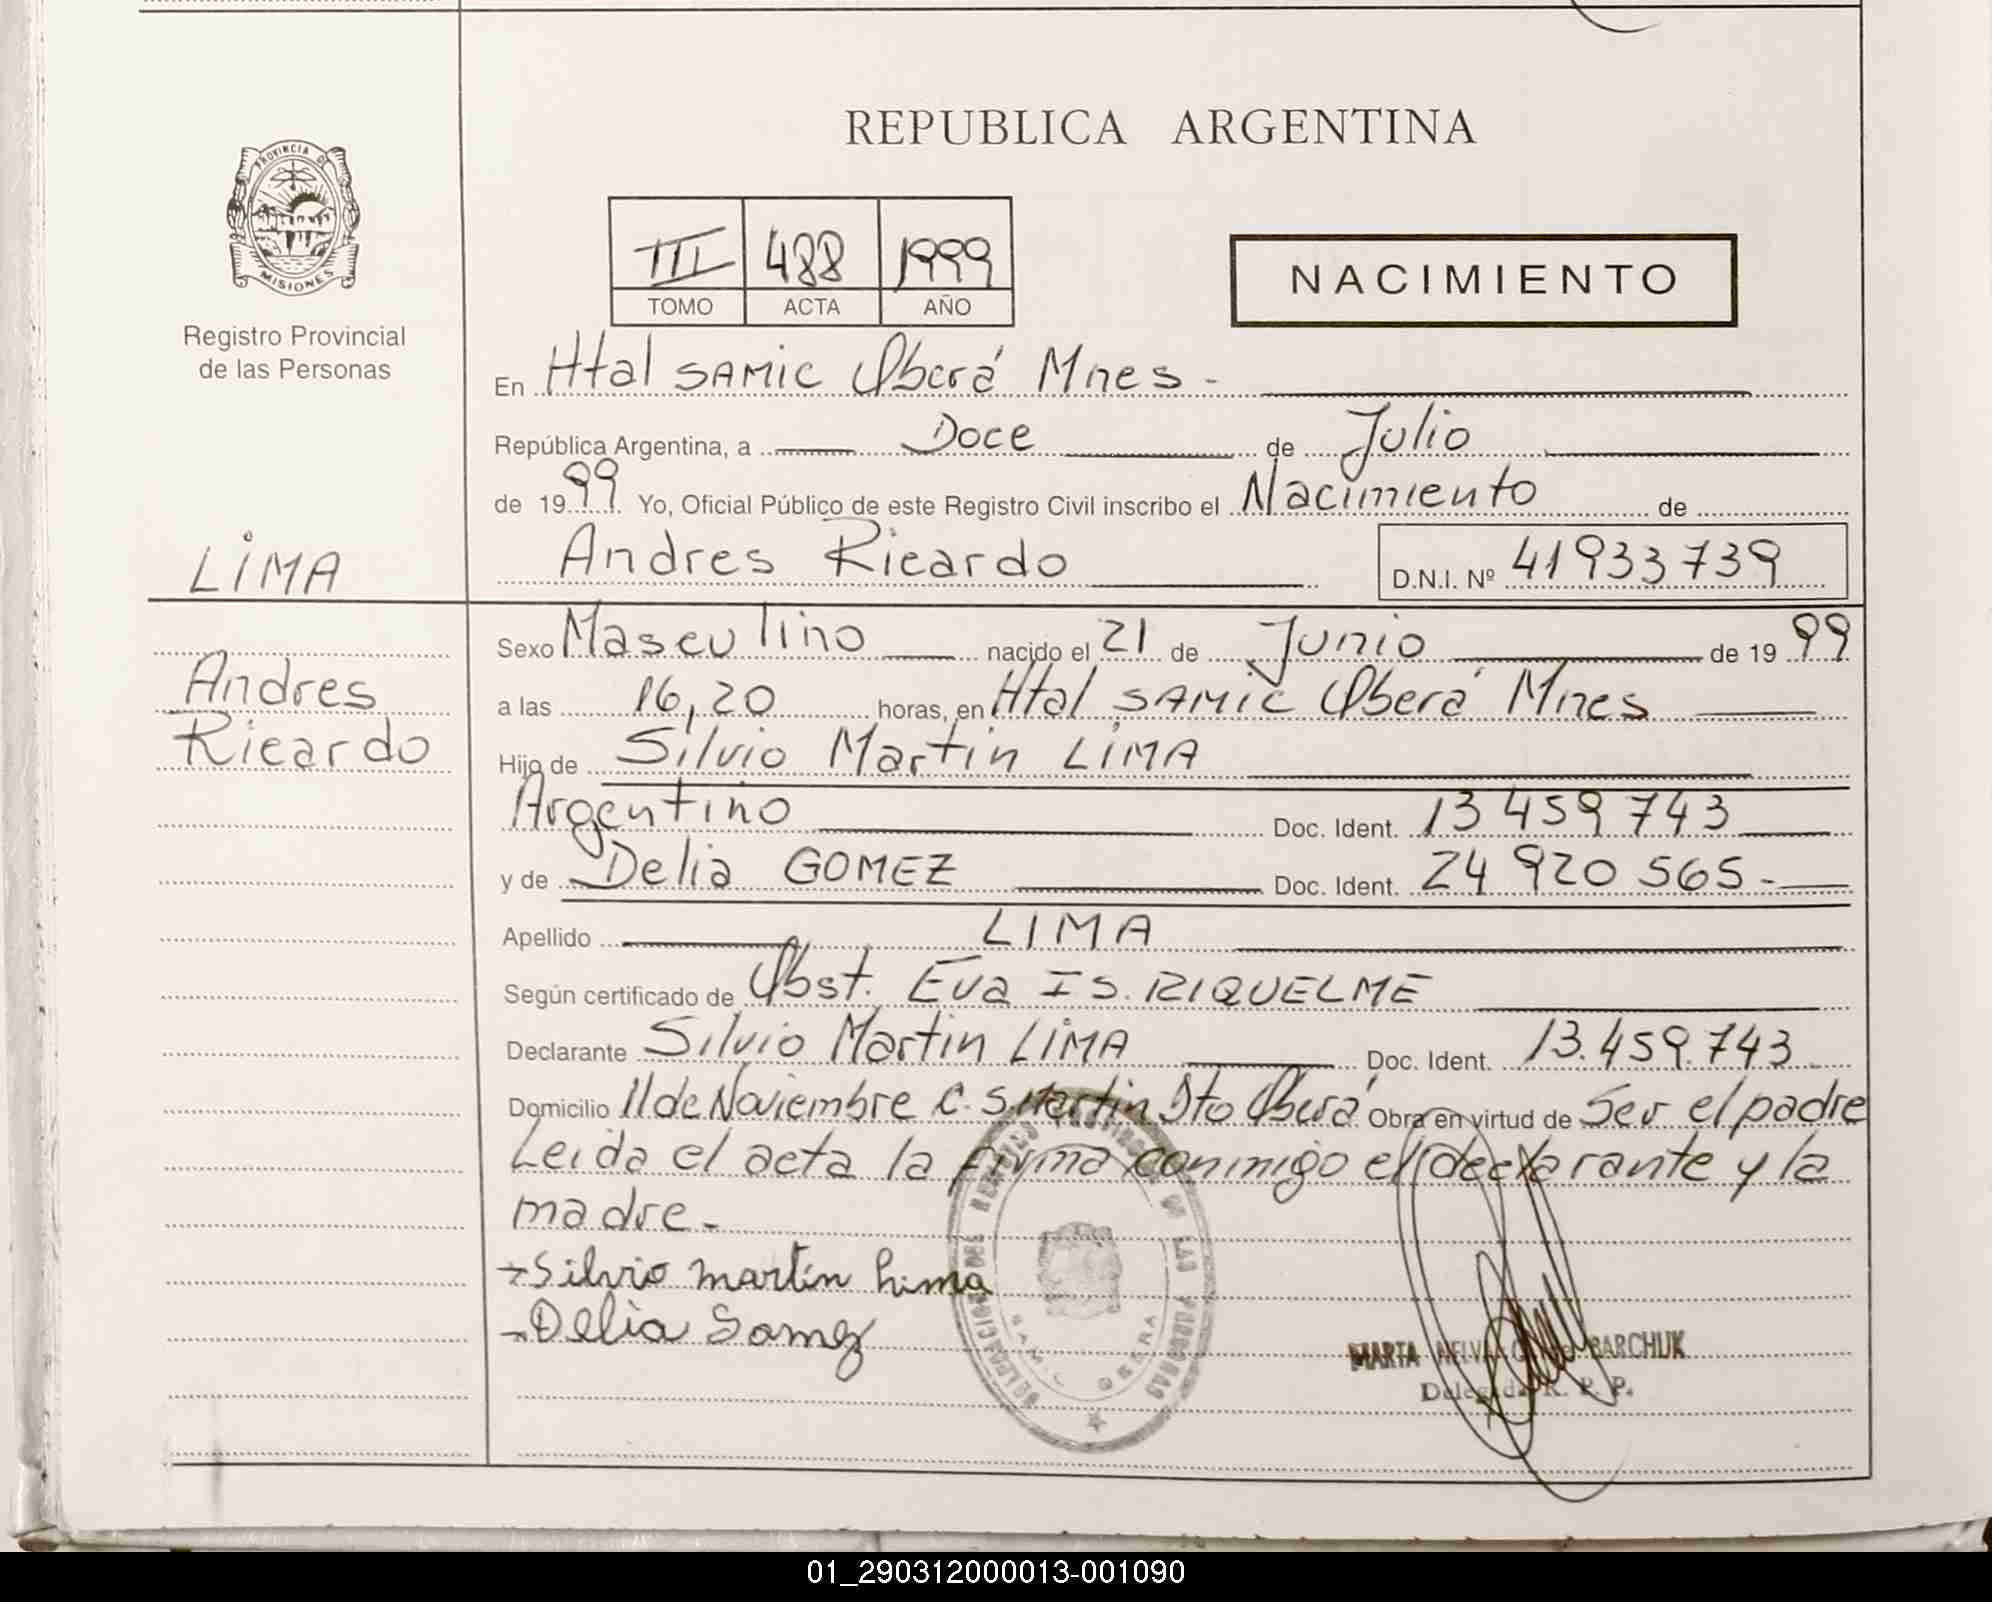 REPUBLICA ARGENTINA
PROVINCIA DE
MISIONES
Registro Provincial
de las Personas
III 488 1999
TOMO ACTA AÑO
NACIMIENTO
En Htal SAMIC Oberá Mnes -
República Argentina, a Doce de Julio
de 1999 Yo, Oficial Público de este Registro Civil inscribo el Nacimiento de
LIMA
Andres Ricardo D.N.I. Nº 41933739
Sexo Masculino nacido el 21 de Junio de 1999
Andres
Ricardo
a las 16,20 horas, en Htal SAMIC Oberá Mnes
Hijo de Silvio Martin LIMA
Argentino Doc. Ident. 13 459 743
y de Delia GOMEZ Doc. Ident. 24 920 565-
Apellido LIMA
Según certificado de Obst. Eva Is. RIQUELME
Declarante Silvio Martin LIMA Doc. Ident. 13.459.743
Domicilio 11 de Noviembre C. S. Martin Dto Oberá Obra en virtud de Ser el padre
Leida el acta la firma conmigo el declarante y la
madre.-
Silvio martin Lima
Delia Gomez
MARTA NELVA BARCHUK
Delegada R. P. P.
DELEGACION DEL REGISTRO PROVINCIAL DE LAS PERSONAS
OBERA
01_290312000013-001090